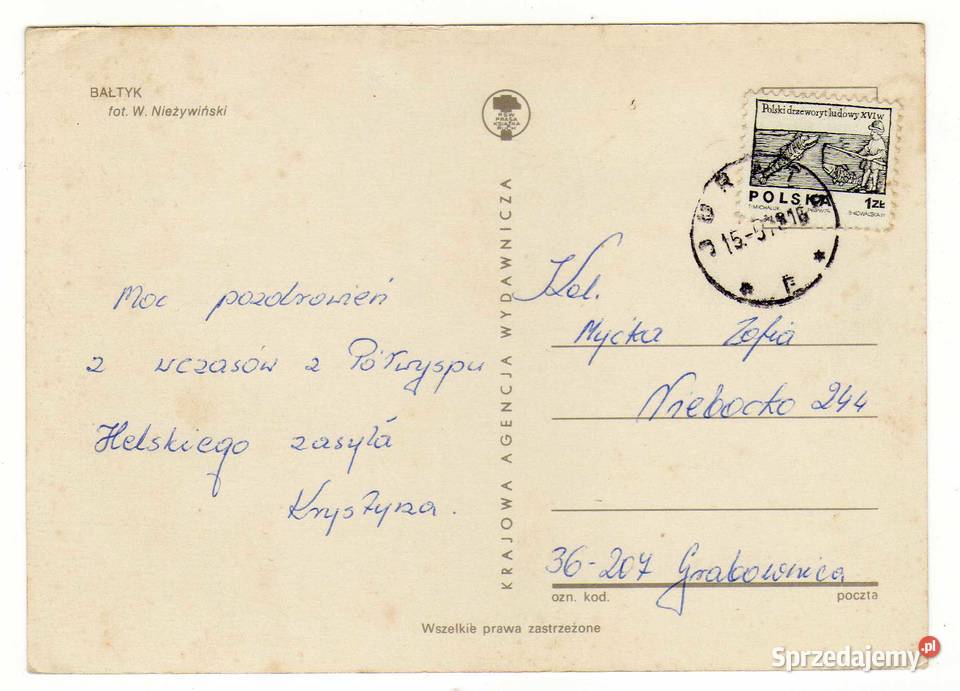 BAŁTYK
fot. W. Nieżywiński
RSW
PRASA
KSIĄŻKA
RUCH
Polski drzeworyt ludowy XVI w
POLSKA 1ZŁ
Moc pozdrowień
z wczasów z Półwyspu
Helskiego zasyła
Krystyna.
KRAJOWA AGENCJA WYDAWNICZA
Kol.
Myćka Zofia
Niebocko 244
36-207 Grabownica
ozn. kod. poczta
Wszelkie prawa zastrzeżone
Sprzedajemy.pl